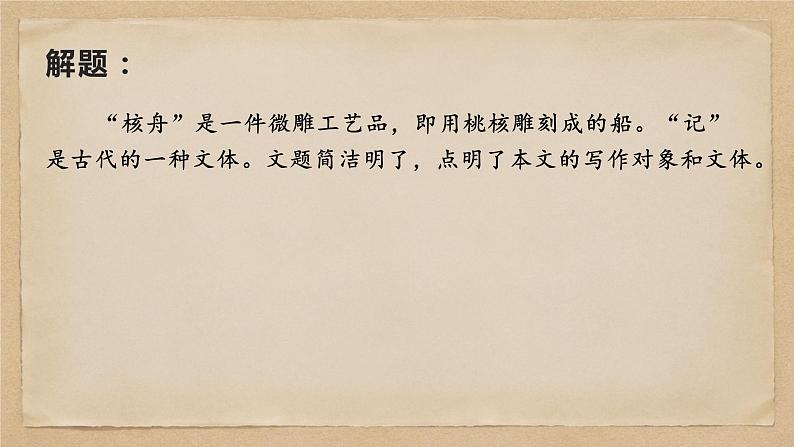 解题：
“核舟”是一件微雕工艺品，即用桃核雕刻成的船。“记”
是古代的一种文体。文题简洁明了，点明了本文的写作对象和文体。